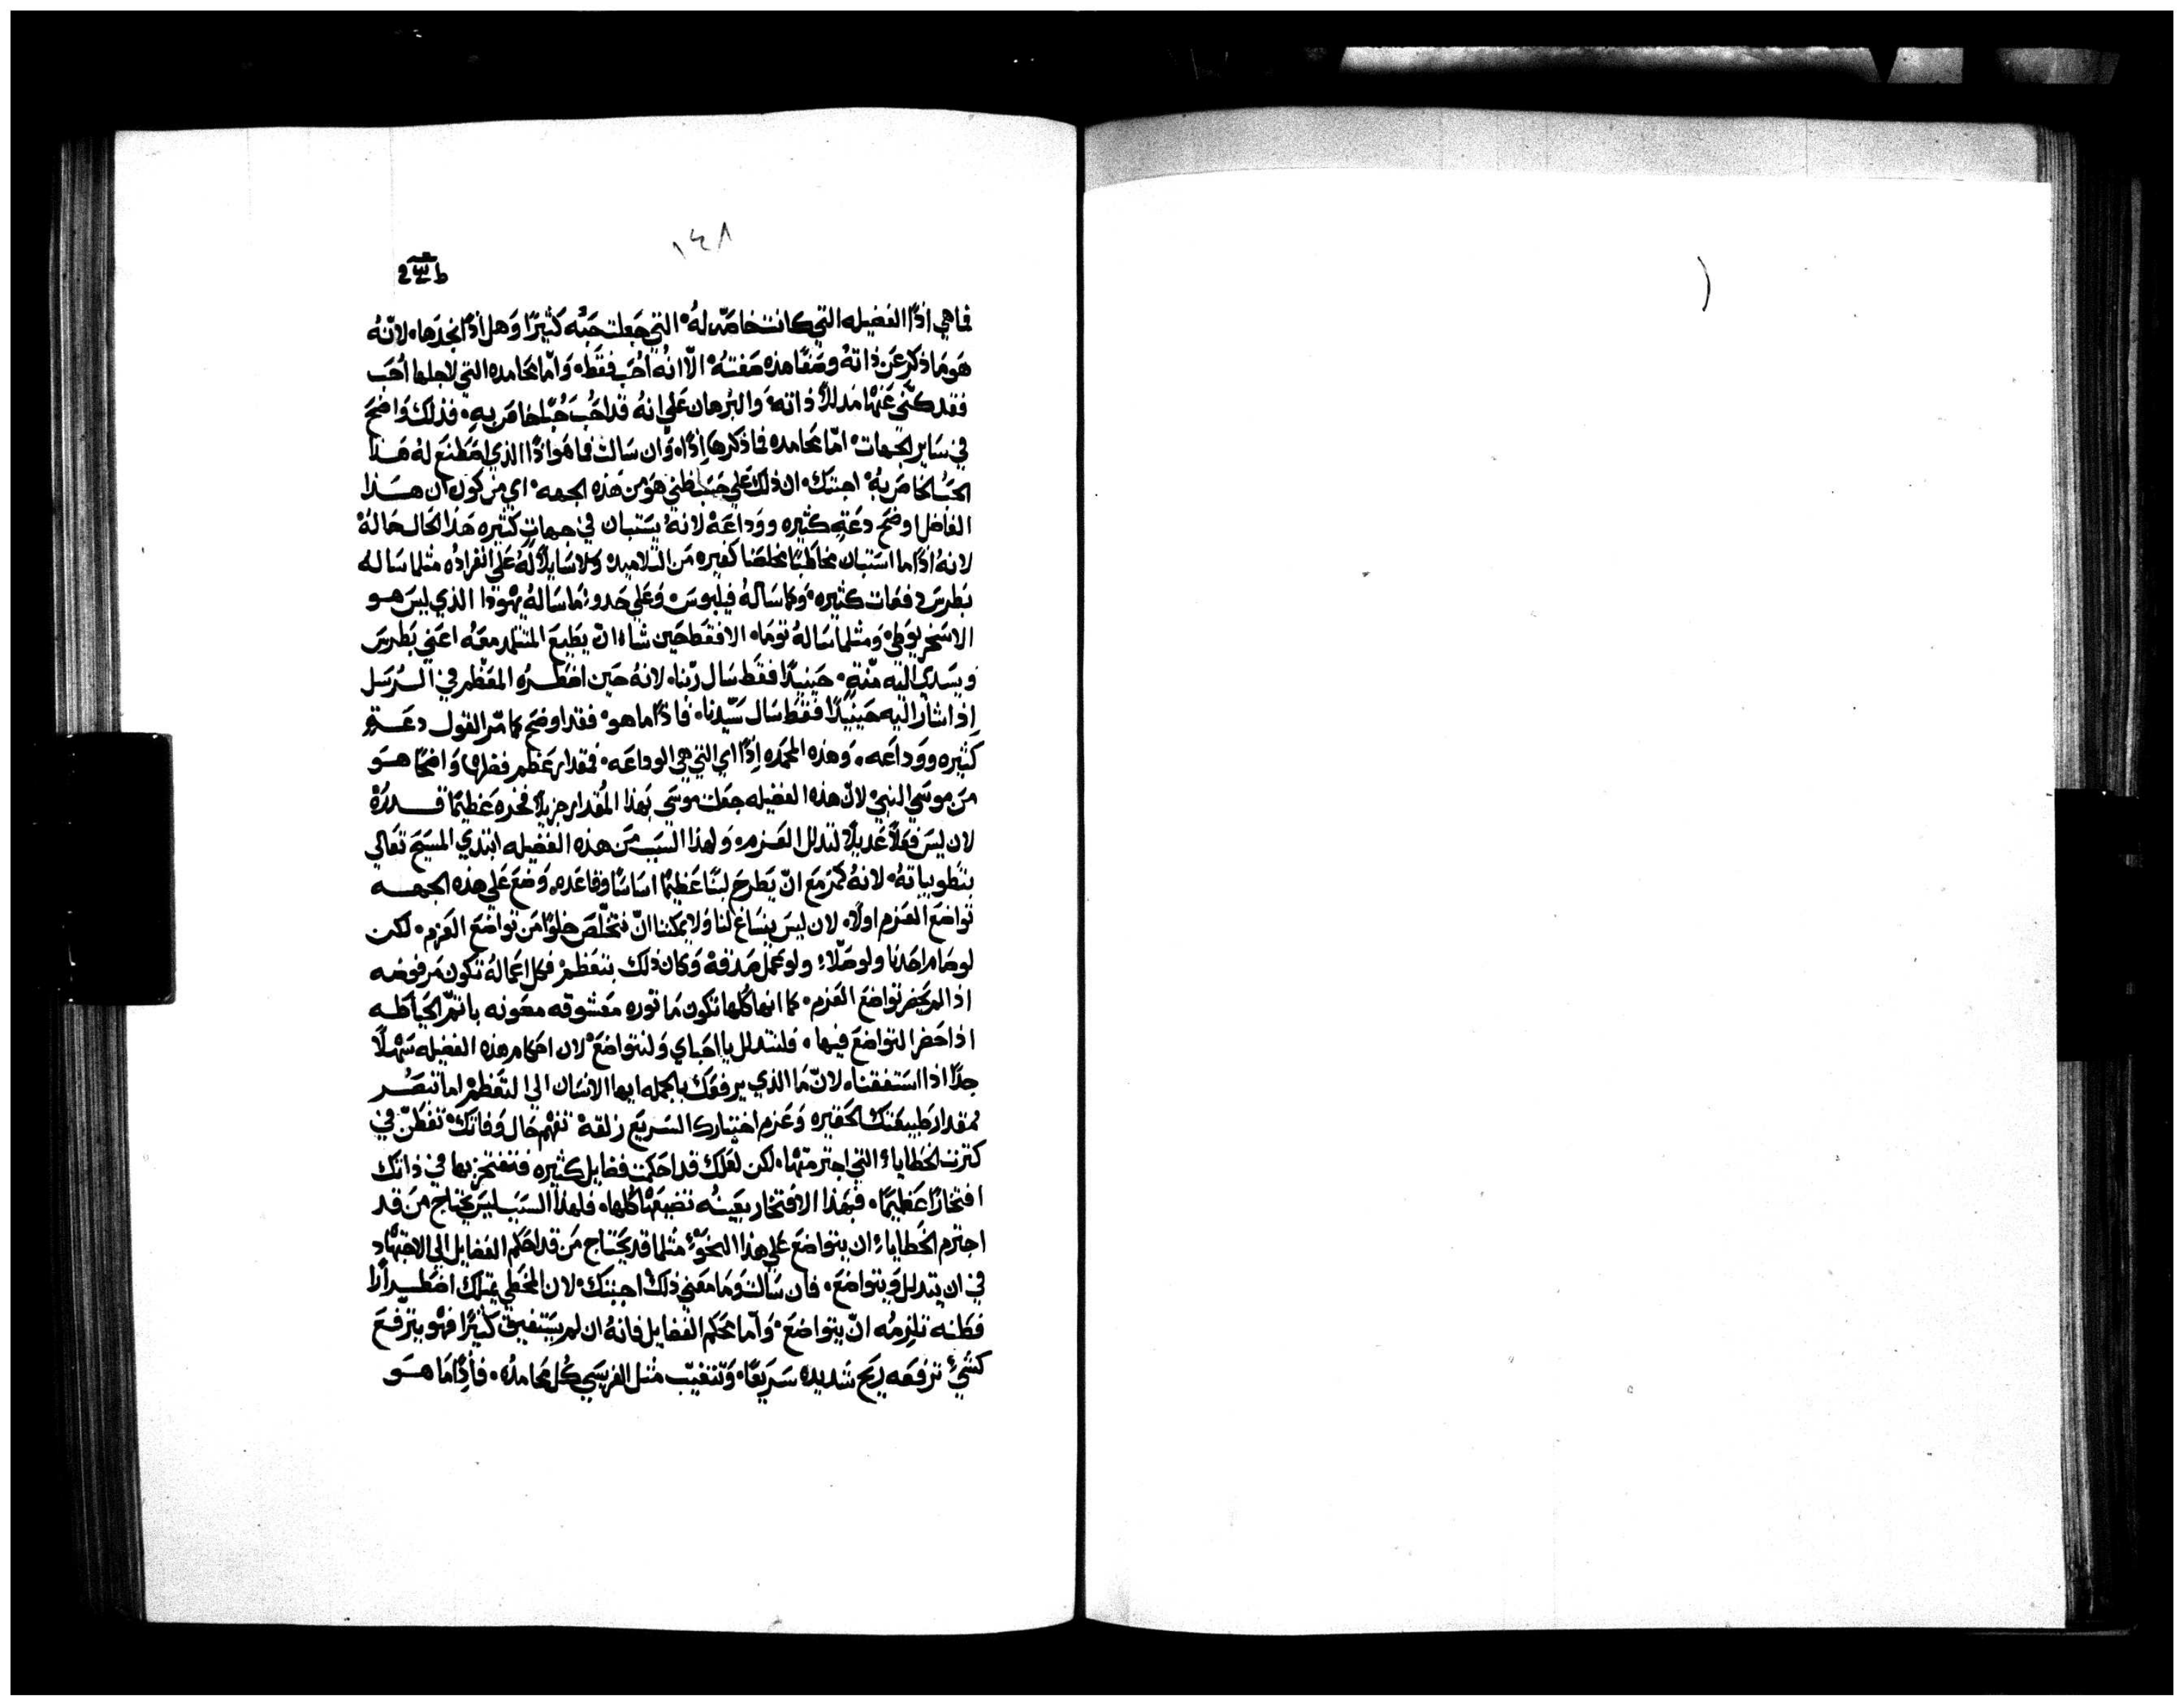 ١٤٨
فما هي اذًا الفضيله التي كانت خاصّه لهُ التي جَعلت حَبّه كثيرًا وَهل اذًا نجدهَا لانّهُ
هَو مَا ذكر عَن ذاتهُ وصَفًا هذه صَفتهُ الّا انهُ اُحَب فقَط وَامّا محَامده التي لاجلها اُحَب
فقد كنّي عَنهَا مذللًا ذاتهُ والبُرهان عَلي انهُ قد احُبَ حُبًّا خاصَ به فذلك وَاضحَ
في سَاير الجهات امّا محَامده فما ذكرهَا اذًا وَان سَالت فما هَو اذًا الذي اصَطنعَ لهُ هَذا
الحَبّ الخاصَ بهُ اجبتك ان ذلك عَلي حَسَب ظني هَو من هَذه الجهه اي من كون ان هَذا
الفاضل اوضحَ دعَةٍ كثيره ووَداعَة لانهُ يسَتبان في جهات كثيره هَذا الحَال حَالهُ
لانهُ اذًا ما اسَتبان مخاطبًا مخلصَنا كغيره مَن التلاميد ولا سَايلًا لهُ عَلي انفرادُه مثلما سَاله
بَطرسَ دفعَات كثيره وَكما سَالهُ فيلبوسَ وَعَلي حَدو مَا سَالهُ يهَوذا الذي ليسَ هـو
الاسَخريوَطي وَمثلما سَالهُ تومَا الا فقَط حَين شاء انّ يَطيعَ المتتلمد معَهُ اعَني بَطرسَ
وَيسَدي اليَه منّةٍ حَينيذًا فقَط سَال ربّنا لانهُ حَين اضَطره المعَظم في الرُسَل
اِذ اشار اليه حَينيذًا فقَط سَال سَيّدنا فاذًا ما هو فقد اوضحَ كما مّر القول دعَةٍ
كثيره ووَداعَه وَهذه المحَمده اِذًا اي التي هَي الوداعَه فمقدار عَظم فضلها وَاضحًا هـو
مَن موسَي النبي لانّ هذه الفضيله جعَلت موسَي بهَذا المُقدار جزيلًا فخره عَظيمًا قدرَهُ
لان ليسَ فعَلًا عَديلًا لتدلل العَزم وَلهذا السَبب مَن هذه الفضيله ابتدي المسَيحَ تعَالي
بتطويباتهُ لانهُ كمزمَعَ انّ يَطرحَ لبنًا عَظيمًا اسَاسًا وقاعَده وَضعَ عَلي هذه الجهـه
تواضعَ العَزم اولًا لان ليسَ ينسَاغ لنا وَلا يمكننا انّ نتخلّصَ خلوًا من تواضَعَ العَزم لكن
لو صَام احَدنا ولو صَلّا ولو عَمل صَدقة وَكان ذلك بتعَظمُ فكل اعَمالهُ تكون مَرفوضه
اذا لم يحَضر تواضعَ العَزم كما انها كُلها تكون مَاثوره مَعَشوقه مصَونه باتمّ الحَياطـه
اذا حَضر التواضعَ فيها فلنتدلل يا احَباي وَلنتواضعَ لان احَكام هذه الفضيله سَهلًا
جدًّا اذا اسَتفقنا لانّ مَا الذي يرفعَك بالجمله ايها الانسَان الي التعَظمُ اما تبصَُر
مقدار طَبيعَتك الحَقيره وَعَزم اختيارك السَريعَ زلقهُ تفهّم حَال وَفاتك تفَطنّ في
كثرت الخَطايا التي اجترمتهَا لكن لعَلك قد احَكمت فضايل كثيره فتفتخر بها في ذاتك
افتخارًا عَظيمًا فبهَذا الافتخار بعَينُه تضيعَها كُلها فلهذا السَبب ليسَ يحَتاج مَن قد
اجترم الخَطايا ان يتواضعَ عَلي هذا النحَوَ مثلما قد يحَتاج مَن قد احَكم الفضايل الي الاجتهَاد
في ان يتدلل وَيتواضعَ فان سَالت وَمَا معَني ذلك اجبتك لان المخَطي يمتلك اضَطرارًا
فطَنه تلزمُه انّ يتواضعَ وَاما محَكم الفضايل فانهُ ان لم يسَتفيق كثيرًا فهَو يترفعَ
كشيَء ترفعَه ريحَ شَديده سَريعًا وَتتغيّب مثل الفريسَي كُل محَامدُه فأذًا مَا هـو